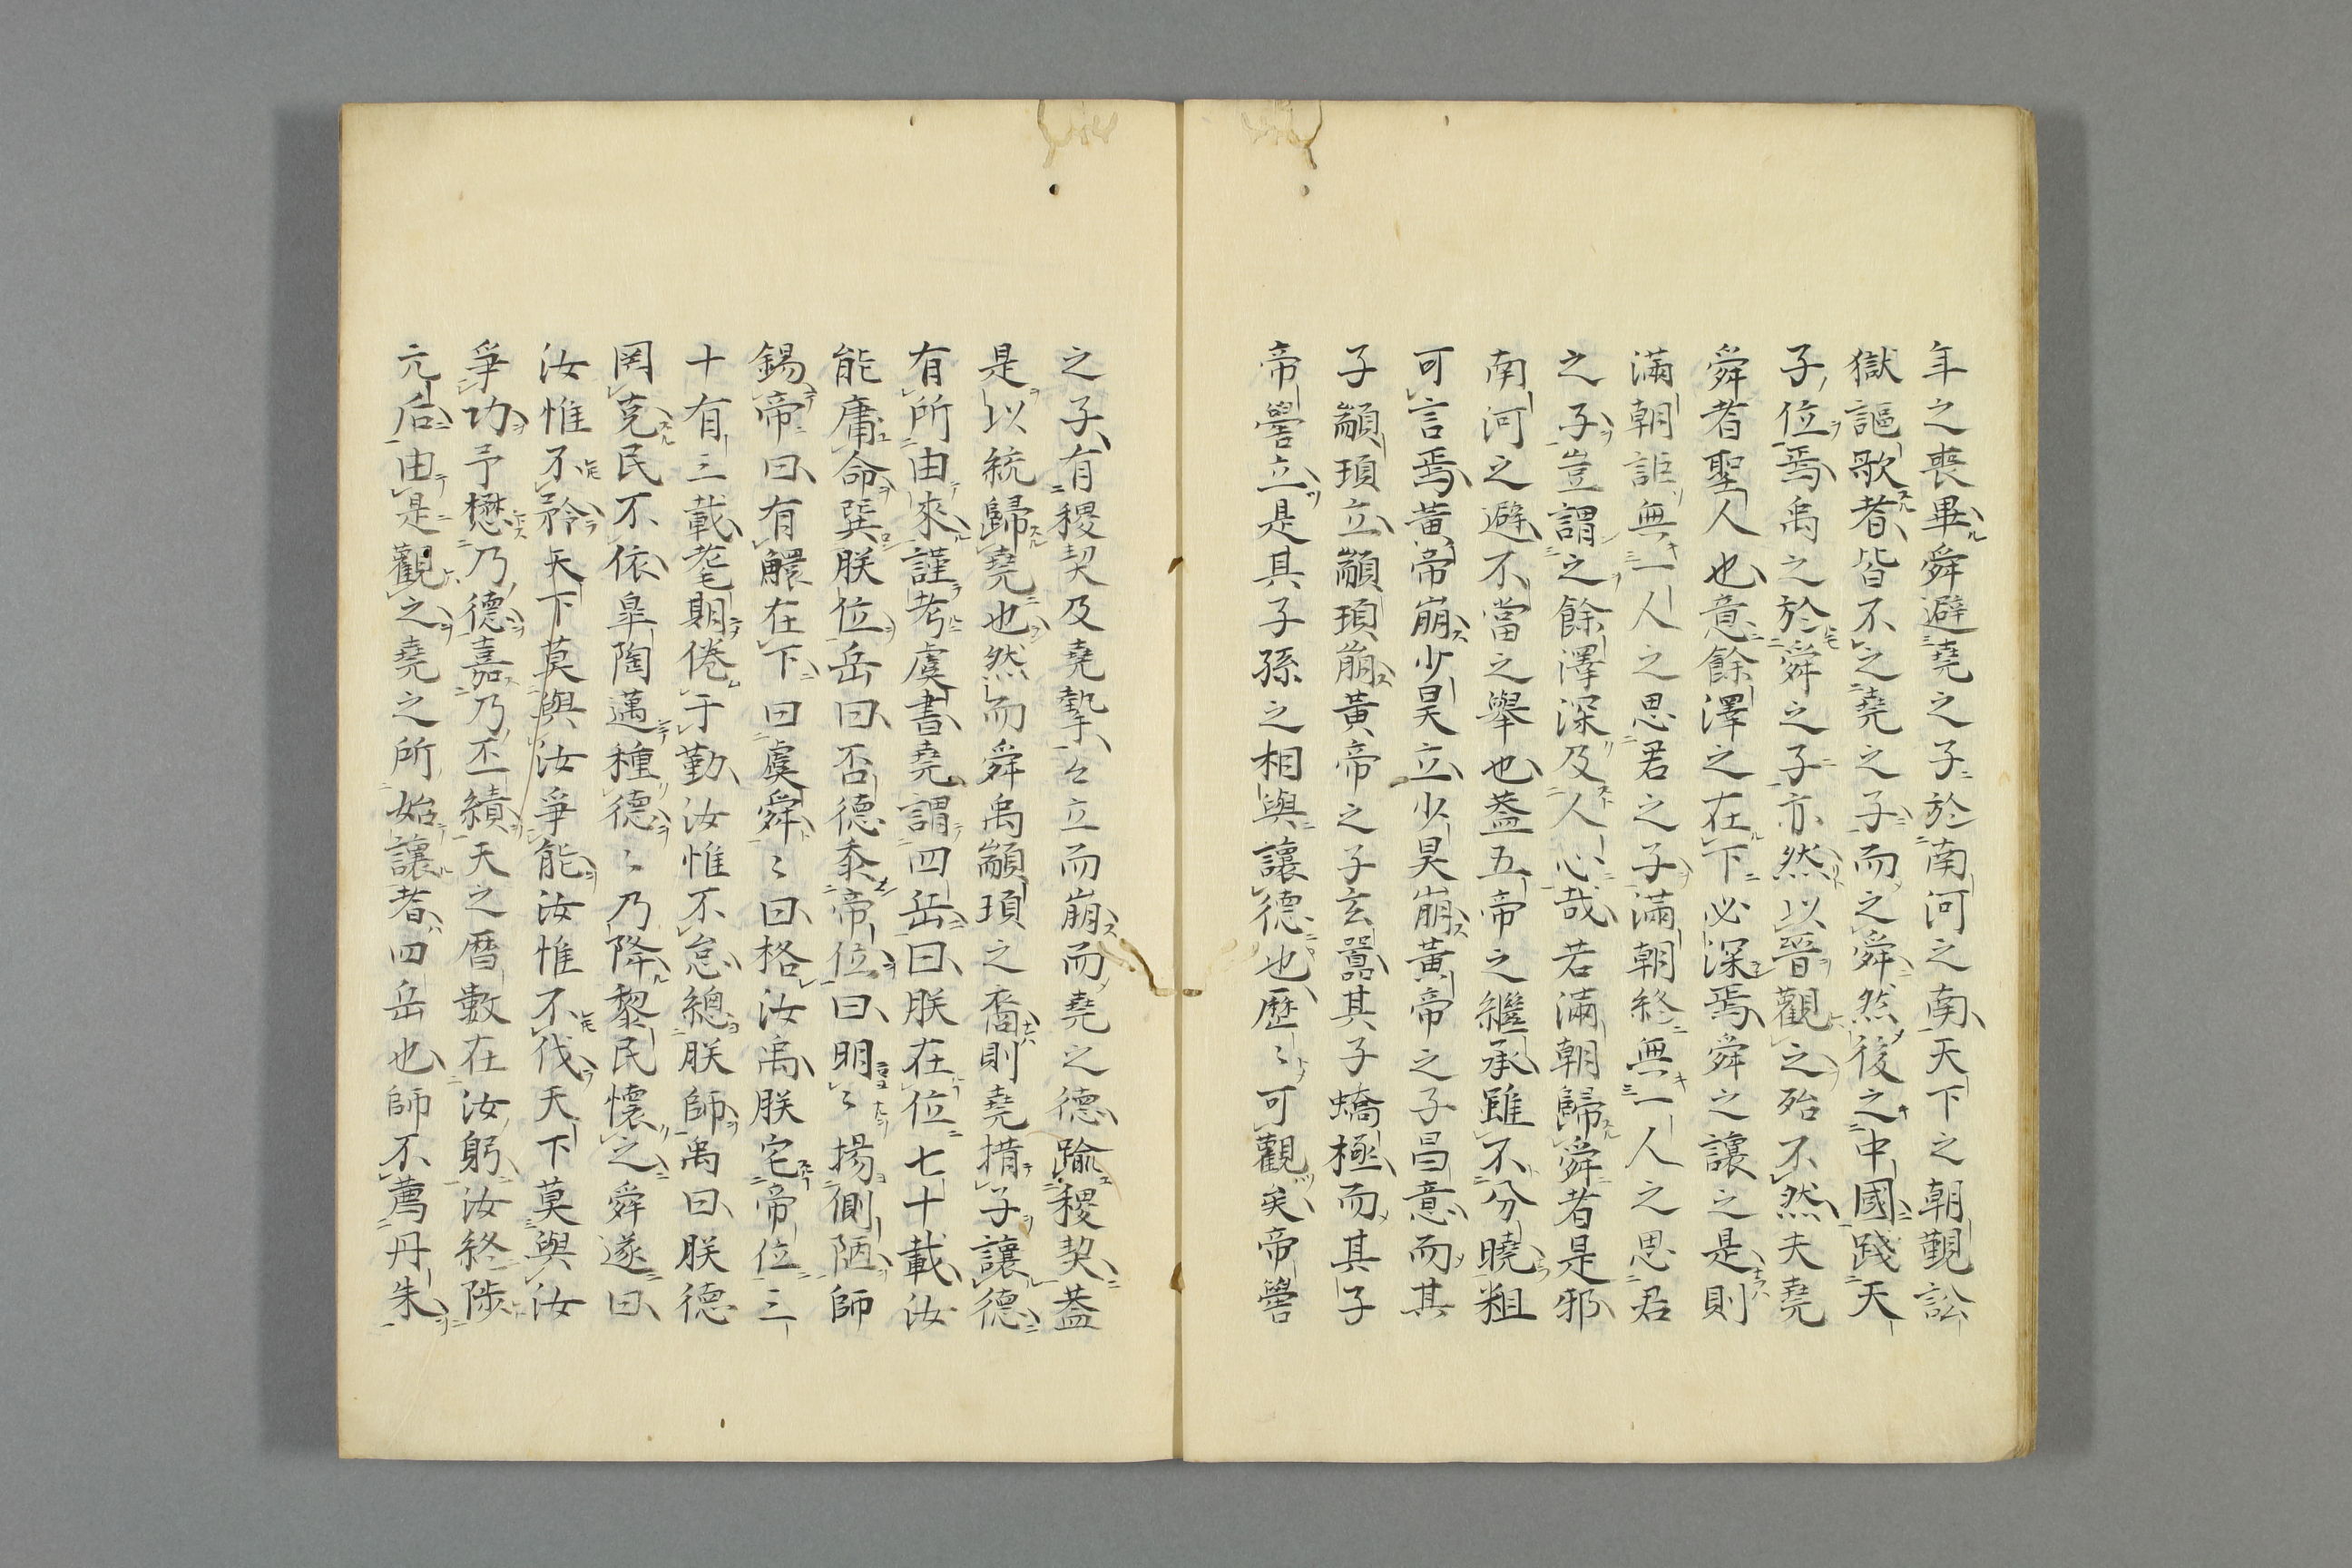 年之喪畢舜避堯之子於南河之南天下之朝覲訟
獄謳歌者皆不之堯之子而之舜然後之中國踐天
子位焉禹之於舜之子亦然以晉觀之殆不然夫堯
舜者聖人也意餘澤之在下必深焉舜之讓之是則
滿朝詎無一人之思君之子滿朝終無一人之思君
之子豈謂之餘澤深及人心哉若滿朝歸舜者是邪
南河之避不當之舉也蓋五帝之繼承雖不分曉粗
可言焉黃帝崩少昊立少昊崩黃帝之子昌意而其
子顓頊立顓頊崩黃帝之子玄囂其子蟜極而其子
帝嚳立是其子孫之相與讓德也歷〻可觀矣帝嚳
之子有稷契及堯摯〻立而崩而堯之德踰稷契蓋
是以統歸堯也然而舜禹顓頊之裔則堯措子讓德
有所由來謹考虞書堯謂四岳曰朕在位七十載汝
能庸命巽朕位岳曰否德忝帝位曰明〻揚側陋師
錫帝曰有鰥在下曰虞舜〻曰格汝禹朕宅帝位三
十有三載耄期倦于勤汝惟不怠總朕師禹曰朕德
罔克民不依皐陶邁種德〻乃降黎民懷之舜遂曰
汝惟不矜天下莫與汝爭能汝惟不伐天下莫與汝
爭功予懋乃德嘉乃丕績天之曆數在汝躬汝終陟
元后由是觀之堯之所始讓者四岳也師不薦丹朱